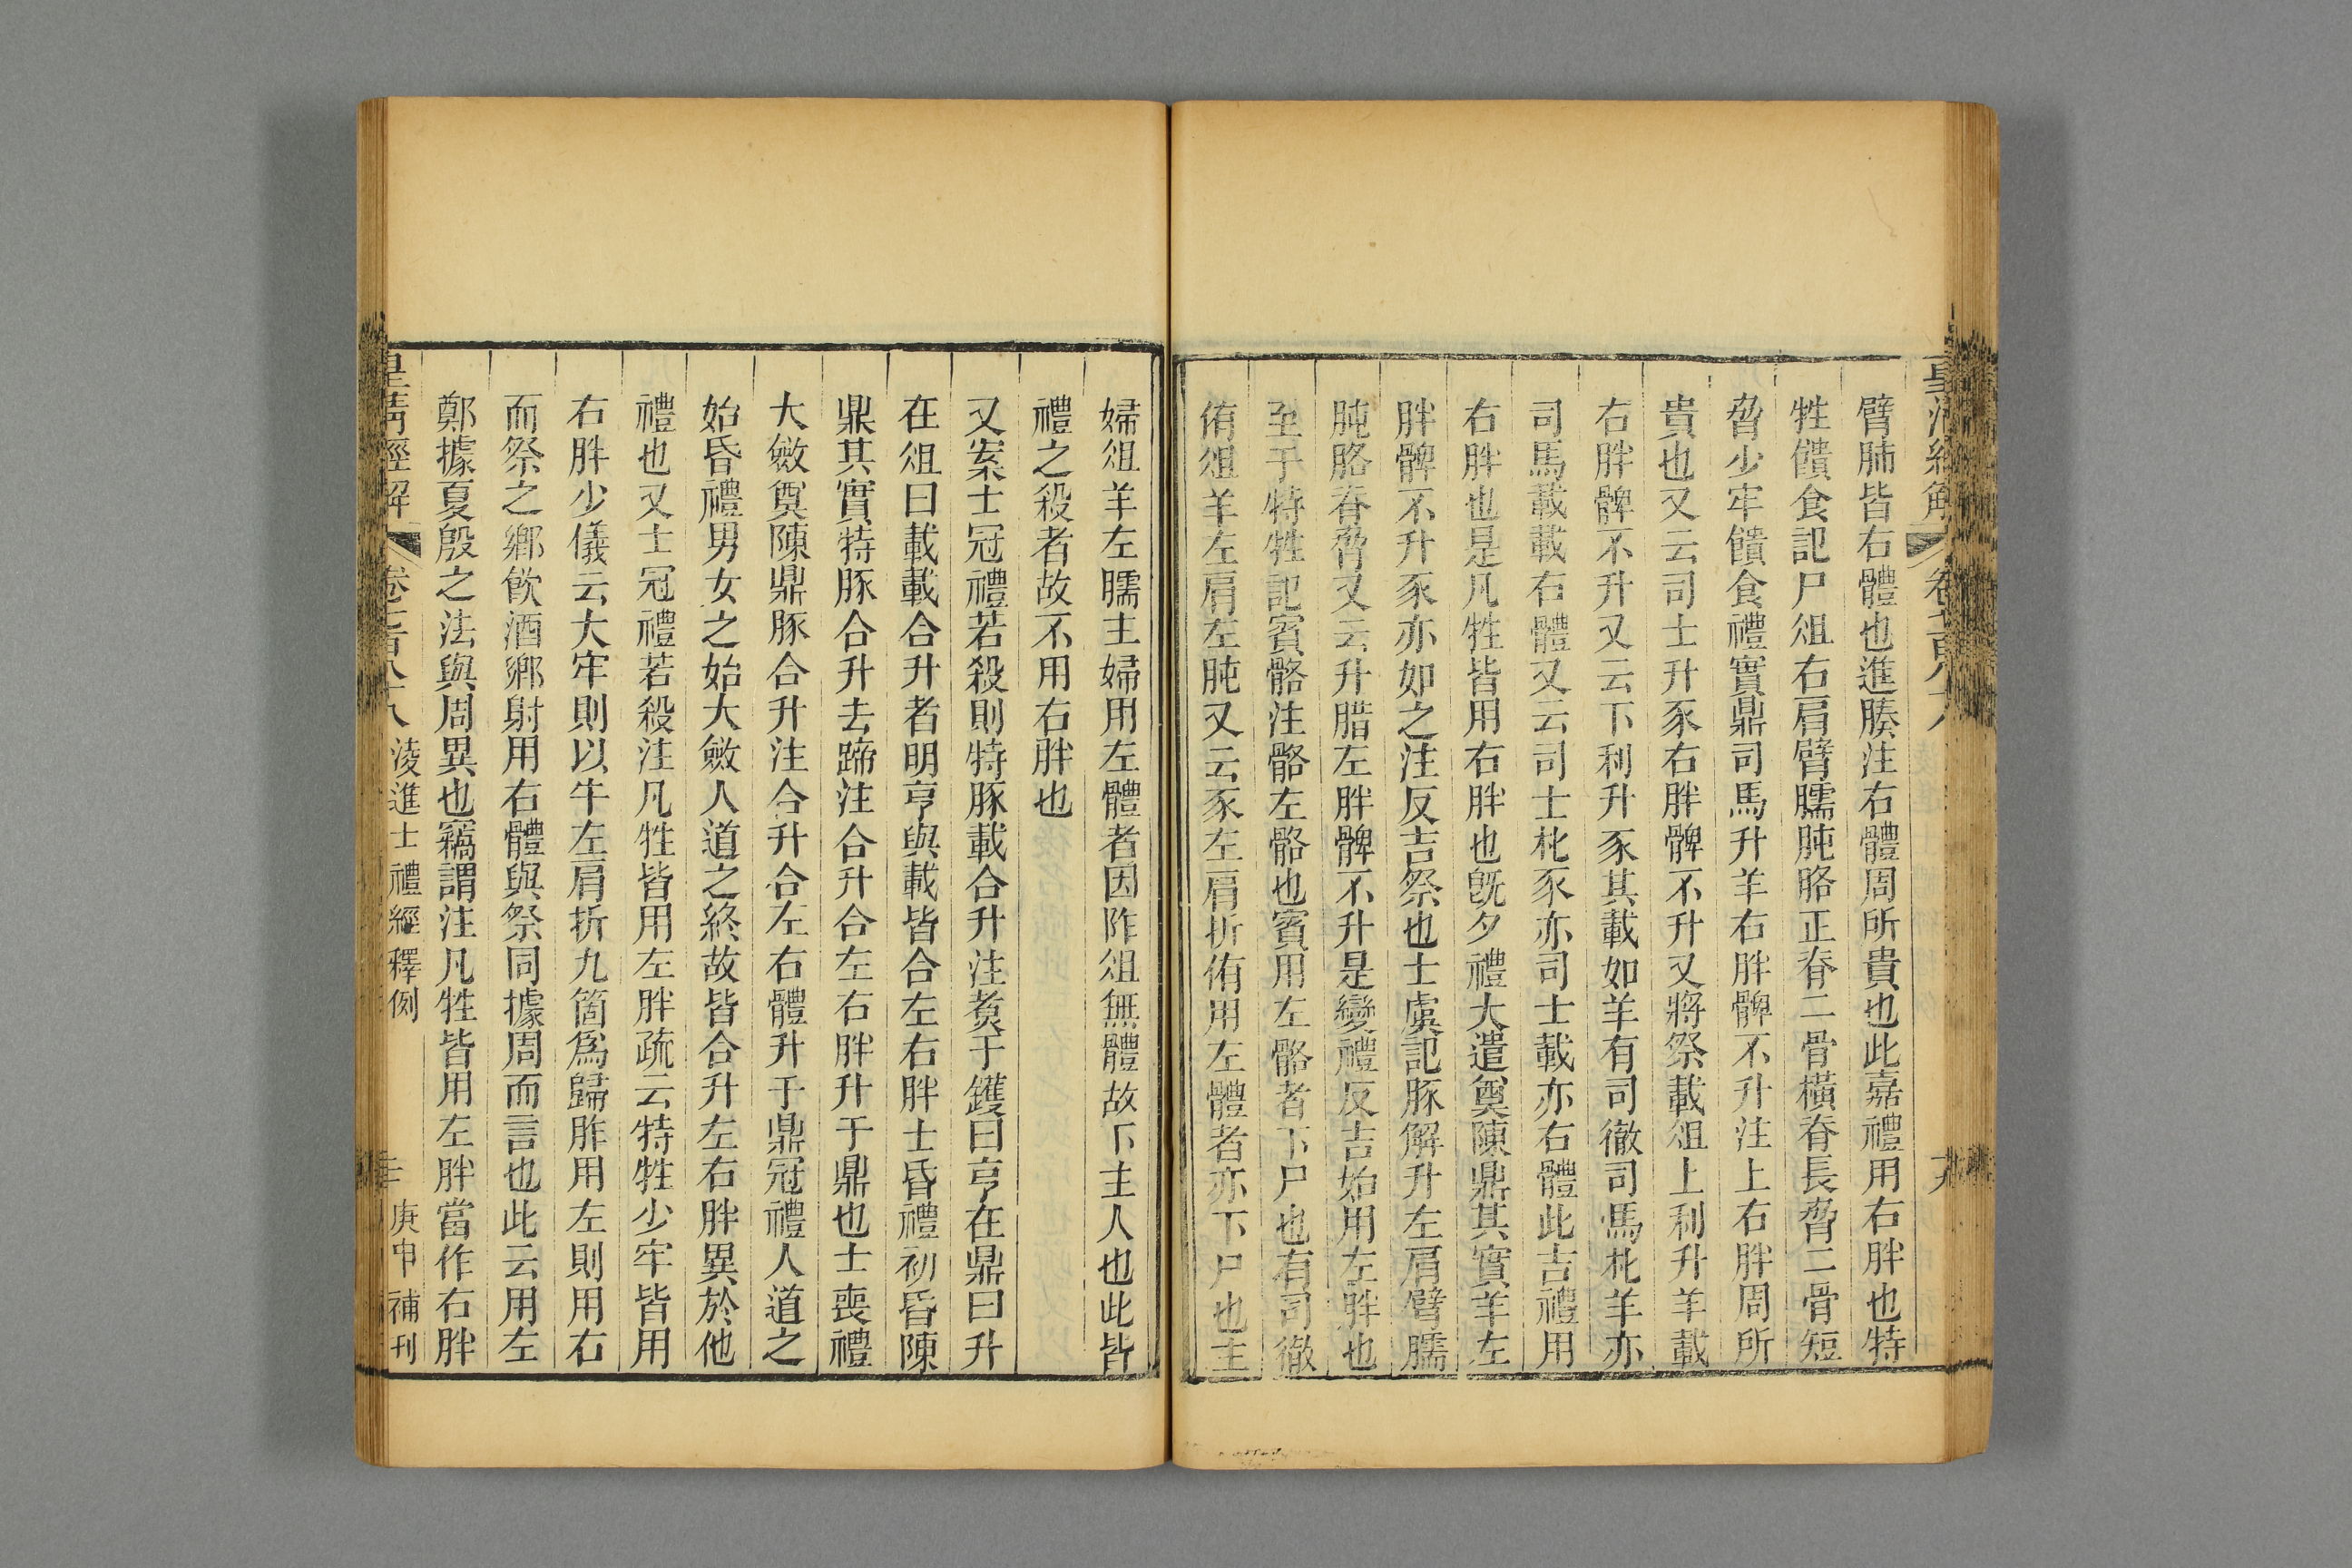 臂肺皆右體也進腠注右體周所貴也此嘉禮用右胖也特
牲饋食記尸俎右肩臂臑肫胳正脊二骨橫脊長脅二骨短
脅少牢饋食禮實鼎司馬升羊右胖髀不升注上右胖周所
貴也又云司士升豕右胖髀不升又將祭載俎上利升羊載
右胖髀不升又云下利升豕其載如羊有司徹司馬朼羊亦
司馬載載右體又云司士朼豕亦司士載亦右體此吉禮用
右胖也是凡牲皆用右胖也旣夕禮大遣奠陳鼎其實羊左
胖髀不升豕亦如之注反吉祭也士虞記豚解升左肩臂臑
肫胳脊脅又云升腊左胖髀不升是變禮反吉始用左胖也
至于特牲記賓骼注骼左骼也賓用左骼者下尸也有司徹
侑俎羊左肩左肫又云豕左肩折侑用左體者亦下尸也主
婦俎羊左臑主婦用左體者因阼俎無體故下主人也此皆
禮之殺者故不用右胖也
又案士冠禮若殺則特豚載合升注煑于鑊曰亨在鼎曰升
在俎曰載載合升者明亨與載皆合左右胖士昏禮初昏陳
鼎其實特豚合升去蹄注合升合左右胖升于鼎也士喪禮
大斂奠陳鼎豚合升注合升合左右體升于鼎冠禮人道之
始昏禮男女之始大斂人道之終故皆合升左右胖異於他
禮也又士冠禮若殺注凡牲皆用左胖疏云特牲少牢皆用
右胖少儀云大牢則以牛左肩折九箇爲歸胙用左則用右
而祭之鄉飮酒鄉射用右體與祭同據周而言也此云用左
鄭據夏殷之法與周異也竊謂注凡牲皆用左胖當作右胖
皇淸經解 卷七百八十八 淩進士禮經釋例 庚申補刊